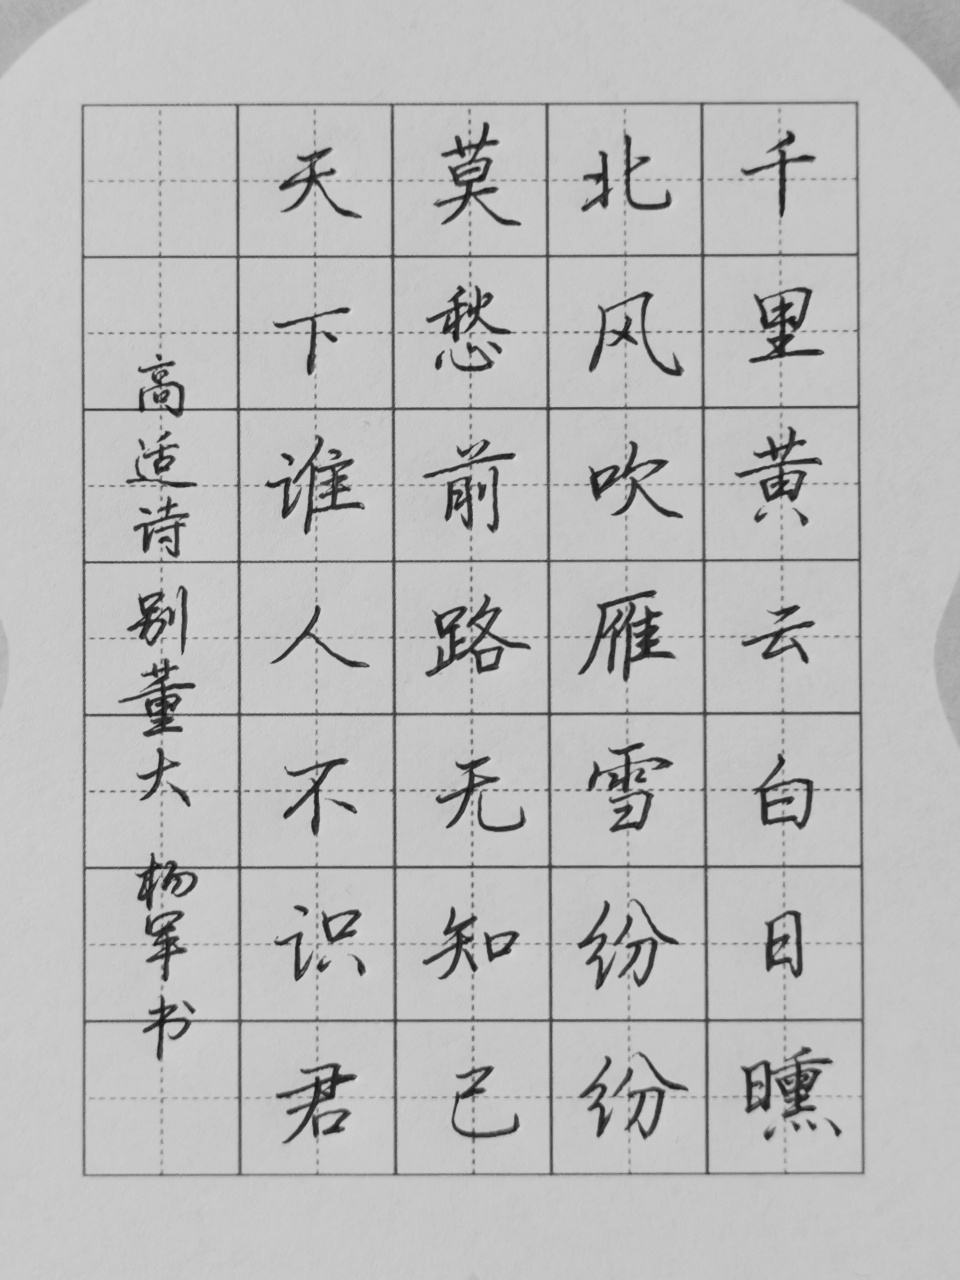 千里黄云白日曛
北风吹雁雪纷纷
莫愁前路无知己
天下谁人不识君
高适诗别董大 杨军书